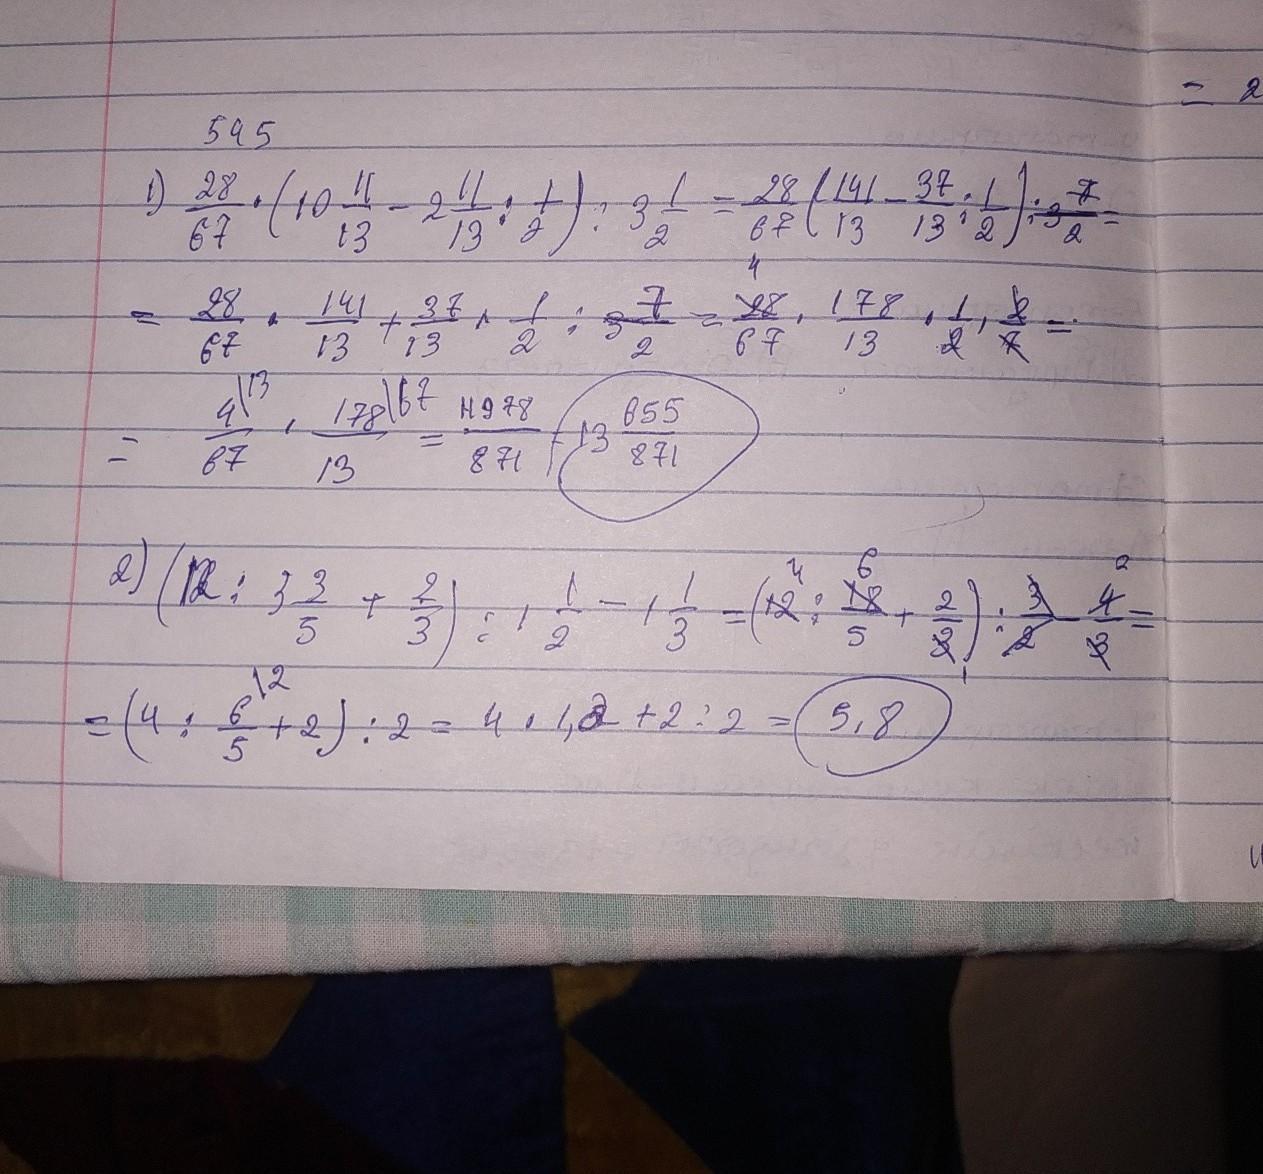 = 2
595
1) 28/67 · (10 11/13 - 2 11/13 : 1/2) : 3 1/2 = 28/67 (141/13 - 37/13 : 1/2) : 3 7/2 =
= 28/67 · 141/13 + 37/13 · 1/2 : 3 7/2 = 28/67 4 · 178/13 · 1/2 · 2/7 =
= 4\13/67 · 178\67/13 = 11978/871 = 13 655/871
2) (12 : 3 3/5 + 2/3) : 1 1/2 - 1 1/3 = (12 4 : 18 6/5 + 2/3 1) : 3/2 - 4 2/3 =
= (4 : 6\2/5 + 2) : 2 = 4 · 1,2 + 2 : 2 = 5,8